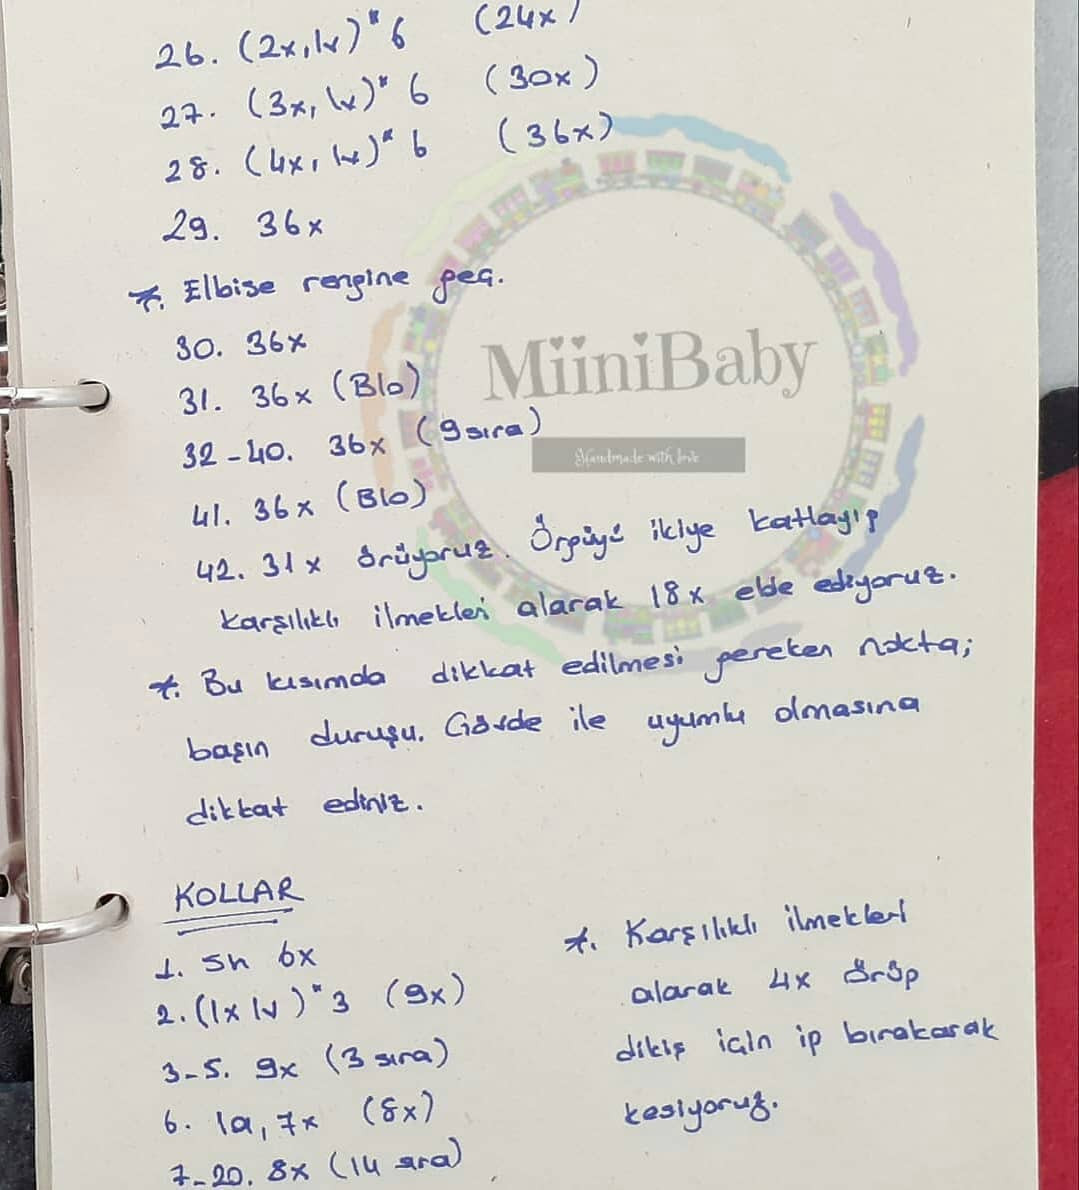 26. (2x,1v)*6 (24x)
27. (3x, 1v)* 6 (30x)
28. (4x, 1v)* 6 (36x)
29. 36x
*. Elbise rengine geç.
30. 36x
31. 36x (Blo)
32-40. 36x (9 sıra)
41. 36x (Blo)
42. 31x örüyoruz. Örgüyü ikiye katlayıp
karşılıklı ilmekleri alarak 18x elde ediyoruz.
*. Bu kısımda dikkat edilmesi gereken nokta;
başın duruşu. Gövde ile uyumlu olmasına
dikkat ediniz.
MiiniBaby
Handmade with love
KOLLAR
1. Sh 6x
2. (1x 1v)*3 (9x)
3-5. 9x (3 sıra)
6. 1a, 7x (8x)
7-20. 8x (14 sıra)
*. Karşılıklı ilmekleri
alarak 4x örüp
dikiş için ip bırakarak
kesiyoruz.